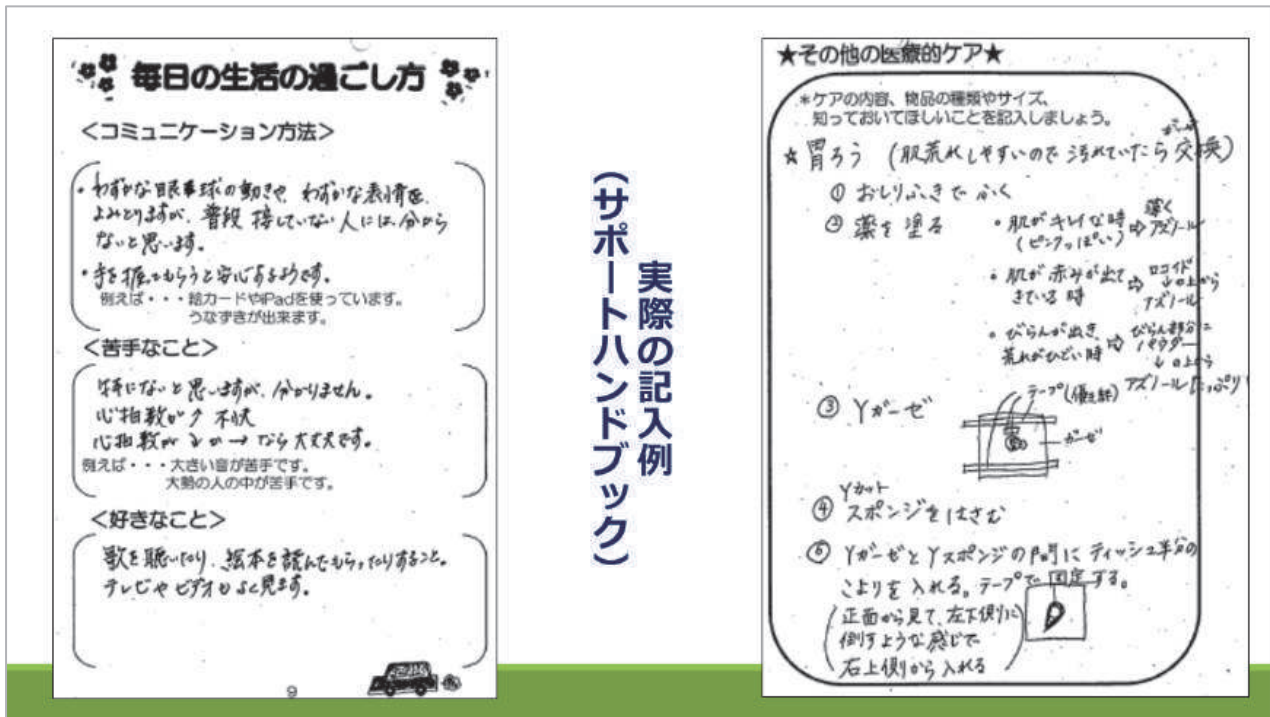 毎日の生活の過ごし方
<コミュニケーション方法>
・わずかな眼球の動きや、わずかな表情を
よみとりますが、普段接していない人には、分から
ないと思います。
・手を握ってもらうと安心するようです。
例えば・・・絵カードやiPadを使っています。
うなずきが出来ます。
<苦手なこと>
特にないと思いますが、分かりません。
心拍数が↗ 不快
心拍数が か → なら大丈夫です。
例えば・・・大きい音が苦手です。
大勢の人の中が苦手です。
<好きなこと>
歌を聴いたり、絵本を読んでもらったりすること。
テレビやビデオもよく見ます。
9
実際の記入例
(サポートハンドブック)
★その他の医療的ケア★
*ケアの内容、物品の種類やサイズ、
知っておいてほしいことを記入しましょう。
☆胃ろう (肌荒れしやすいので汚れていたら ガーゼ 交換)
① おしりふきでふく
② 薬を塗る
・肌がキレイな時 ⇨ 薄く アズノール
(ピンクっぽい)
・肌が赤みが出て ⇨ ロコイド
きている時 ↓の上から
アズノール
・びらんが出き、 ⇨ びらん部分に
荒れがひどい時 パウダー
↓の上から
アズノール たっぷり
③ Yガーゼ
テープ(優肌絆)
ガーゼ
④ Yカット
スポンジをはさむ
⑤ YガーゼとYスポンジの間に ティッシュ半分の
こよりを入れる。テープで固定する。
(正面から見て、左下側に
倒すような感じで
右上側から入れる)